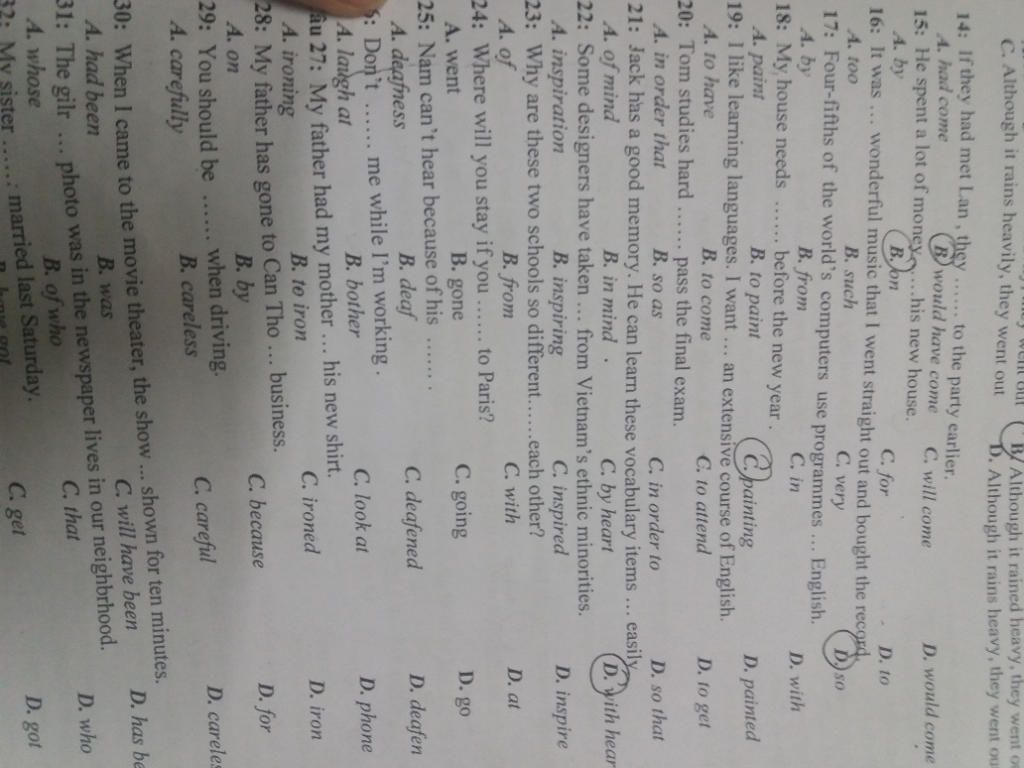 C. Although it rains heavily, they went out D. Although it rains heavy, they went ou
14: If they had met Lan , they ....... to the party earlier.
A. had come B. would have come C. will come D. would come
15: He spent a lot of money......his new house.
A. by B. on C. for D. to
16: It was ... wonderful music that I went straight out and bought the record.
A. too B. such C. very D. so
17: Four-fifths of the world's computers use programmes ... English.
A. by B. from C. in D. with
18: My house needs ....... before the new year .
A. paint B. to paint C. painting D. painted
19: I like learning languages. I want ... an extensive course of English.
A. to have B. to come C. to attend D. to get
20: Tom studies hard ....... pass the final exam.
A. in order that B. so as C. in order to D. so that
21: Jack has a good memory. He can learn these vocabulary items ... easily.
A. of mind B. in mind . C. by heart D. with hear
22: Some designers have taken ... from Vietnam's ethnic minorities.
A. inspiration B. inspiring C. inspired D. inspire
23: Why are these two schools so different.......each other?
A. of B. from C. with D. at
24: Where will you stay if you ....... to Paris?
A. went B. gone C. going D. go
25: Nam can't hear because of his ....... .
A. deafness B. def C. deafened D. deafen
6: Don't ...... me while I'm working .
A. laugh at B. bother C. look at D. phone
âu 27: My father had my mother ... his new shirt.
A. ironing B. to iron C. ironed D. iron
28: My father has gone to Can Tho ... business.
A. on B. by C. because D. for
29: You should be ....... when driving.
A. carefully B. careless C. careful D. careles
30: When I came to the movie theater, the show ... shown for ten minutes.
A. had been B. was C. will have been D. has be
31: The gilr .... photo was in the newspaper lives in our neighbrhood.
A. whose B. of who C. that D. who
32: My sister ....... married last Saturday.
C. get D. got